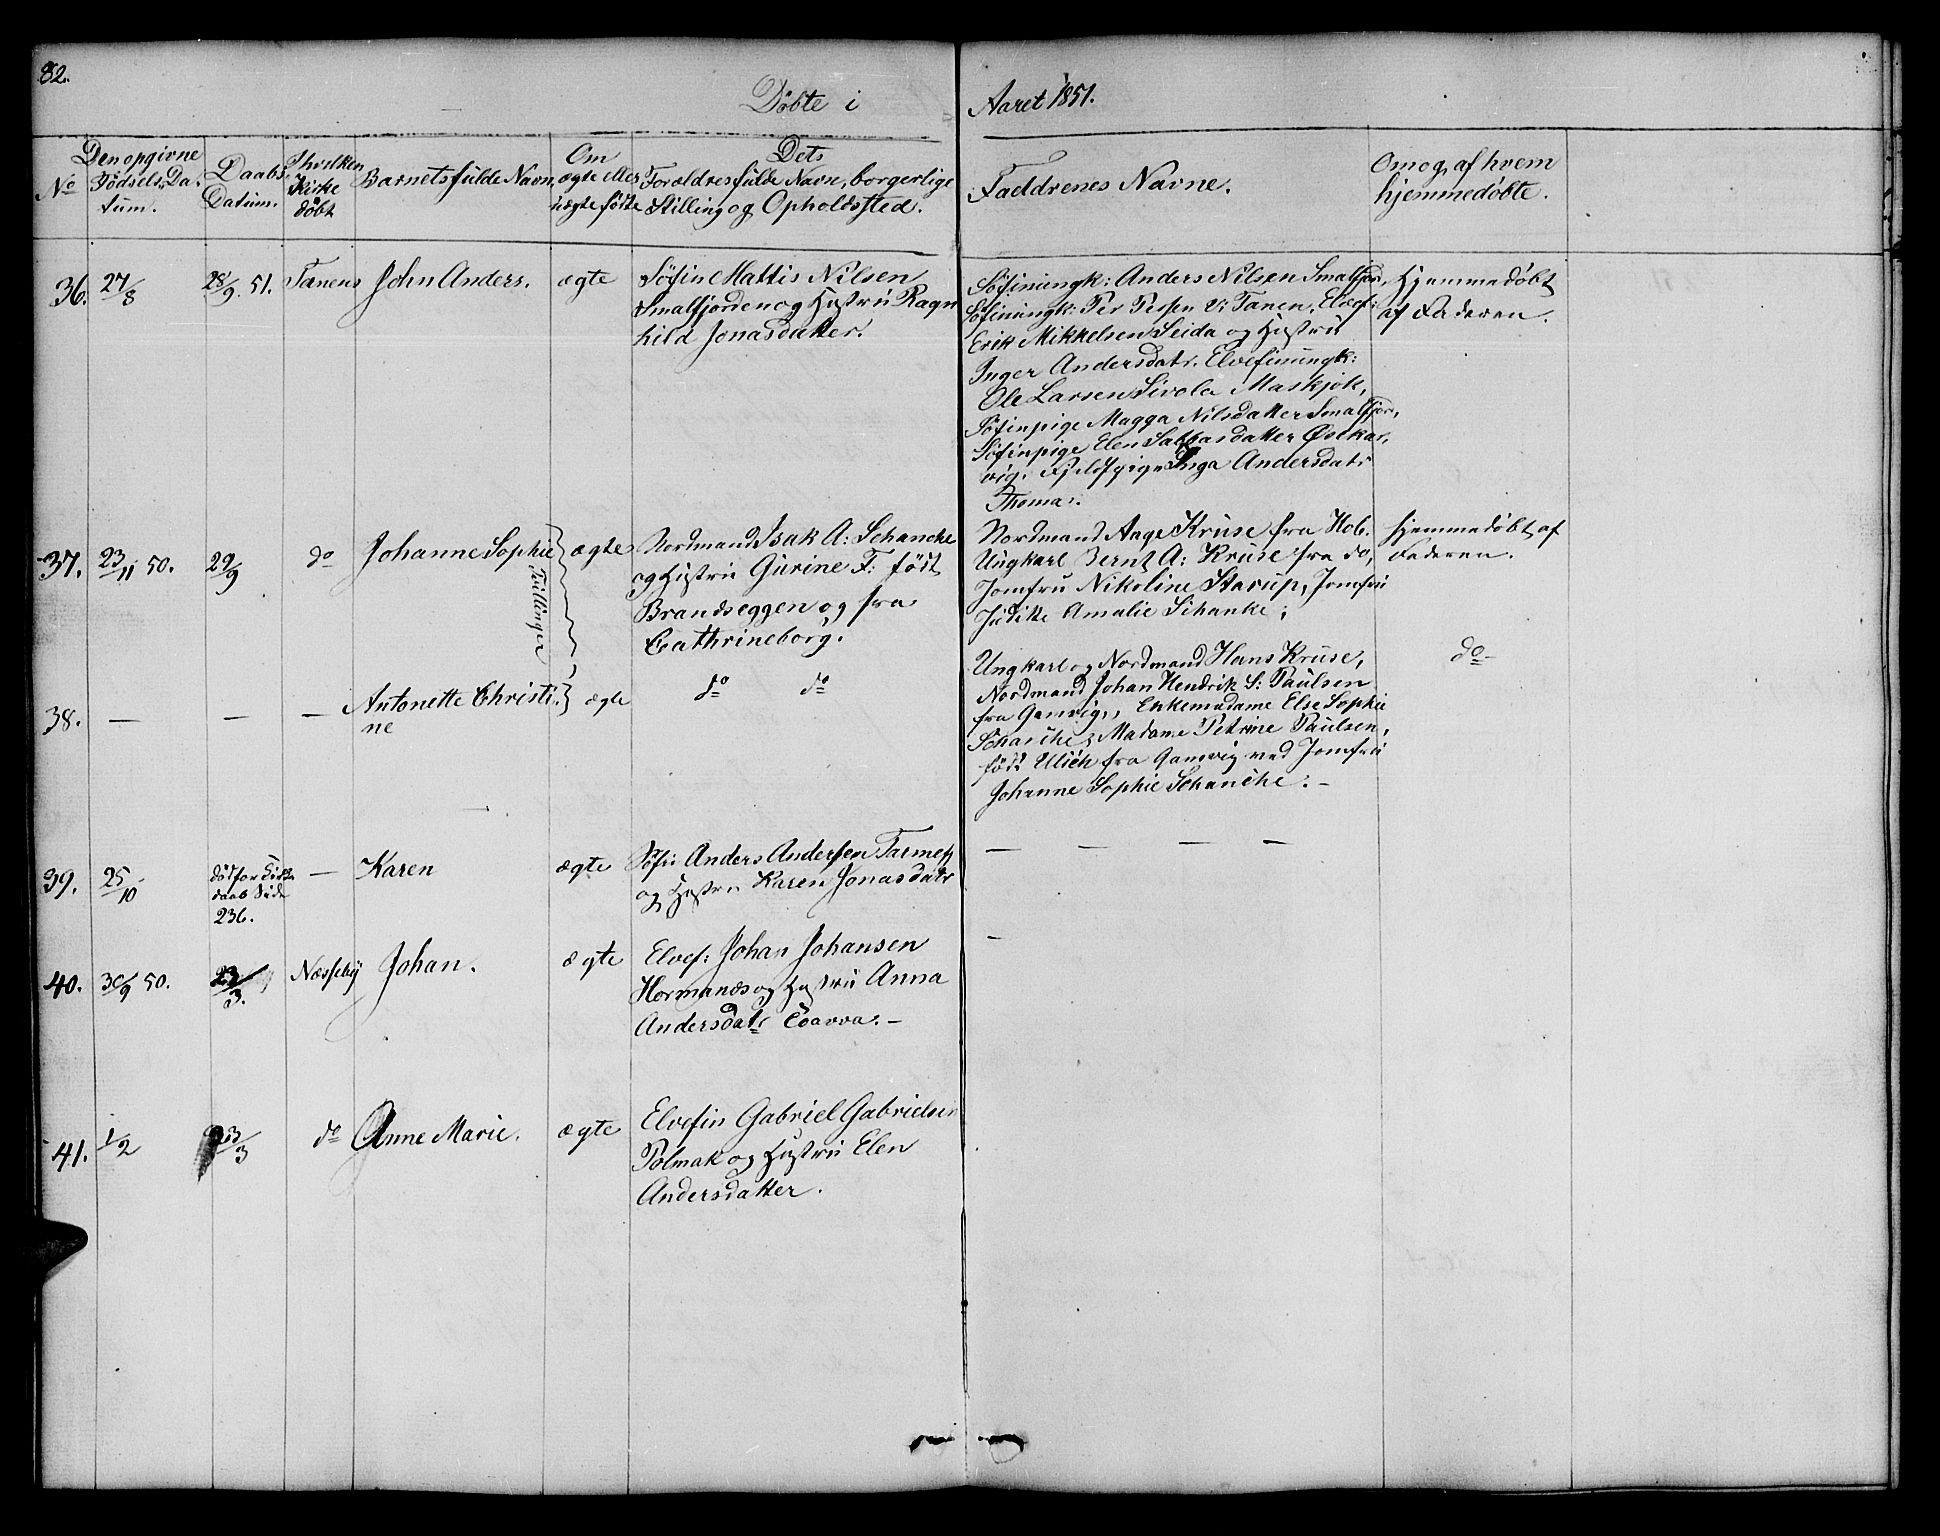 82.
Døbte i Aaret 1851.
No
Den opgivne Fødsels Da-
tum.
Daabs
Datum.
I hvilken
Kirke
døbt
Barnets fulde Navn,
Om
ægte eller
uægte født
Dets
Forældres fulde Navn, borgerlige
Stilling og Opholdssted.
Faddrenes Navne.
Om og af hvem
hjemmedøbte.
36. 27/8 28/9. 51. Tanens John Anders. ægte
Søfin Mattis Nilsen
Smalfjorden og Hustru Ragn
hild Jonasdatter.
Søfinungk: Anders Nilsen Smalfjor,
Søfinungk: Per Persen v: Tanen, Elvef:
Erik Mikkelsen Seida og Hustru
Inger Andersdatr. Elvefinungk:
Ole Larsen Sivola Maskjok,
Søfinpige Magga Nilsdatter Smalfjor,
Søfinpige Elen Datter Østkar,
vig, Fjeldfpige Inga Andersdatr
Thoma:.
Hjemmedøbt
af Faderen.
37. 23/11 50. 29/9 do Johanne Sophie ægte
Tvillinger
Nordmand Isak A: Schancke
og Hustru Gurine F: født
Brandseggen og fra
Cathrineborg.
Nordmand Aage Kruse fra Hob.
Ungkarl Bernt A: Kruse fra do,
Jomfru Nikoline Starup, Jomfru
Juditte Amalie Schanke;
Hjemmedøbt af
Faderen.
38. — — — Antonette Christi-
ne
ægte
do do
Ungkarl og Nordmand Hans Kruse,
Nordmand Johan Hendrik S: Paulsen
fra Gamvig,, Enkemadame Else Sophie
Schancke, Madame Petrine Paulsen,
født Ulich fra Gamvig ved Jomfru
Johanne Sophie Schancke. —
do —
39. 25/10 død for Kirke
daab Side
236.
— Karen ægte
Søfin Anders Andersen Tarmefj
og Hustru Karen Jonasdatr
— — — —
40. 30/9 50. 23/3. Næsseby Johan. ægte
Elvef: Johan Johansen
Hormanæs og Hustru Anna
Andersdatr Coavva. —
—
41. 1/2 23/3 do Anne Marie. ægte
Elvefin Gabriel Gabrielsen
Polmak og Hustru Elen
Andersdatter.